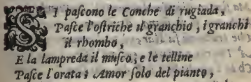 SI pascono le Conche di rugiada,
Pasce l'ostriche il granchio, i granchi
il rhombo,
E la lampreda il musco; e le telline
Pasce l'orata; Amor solo del pianto,